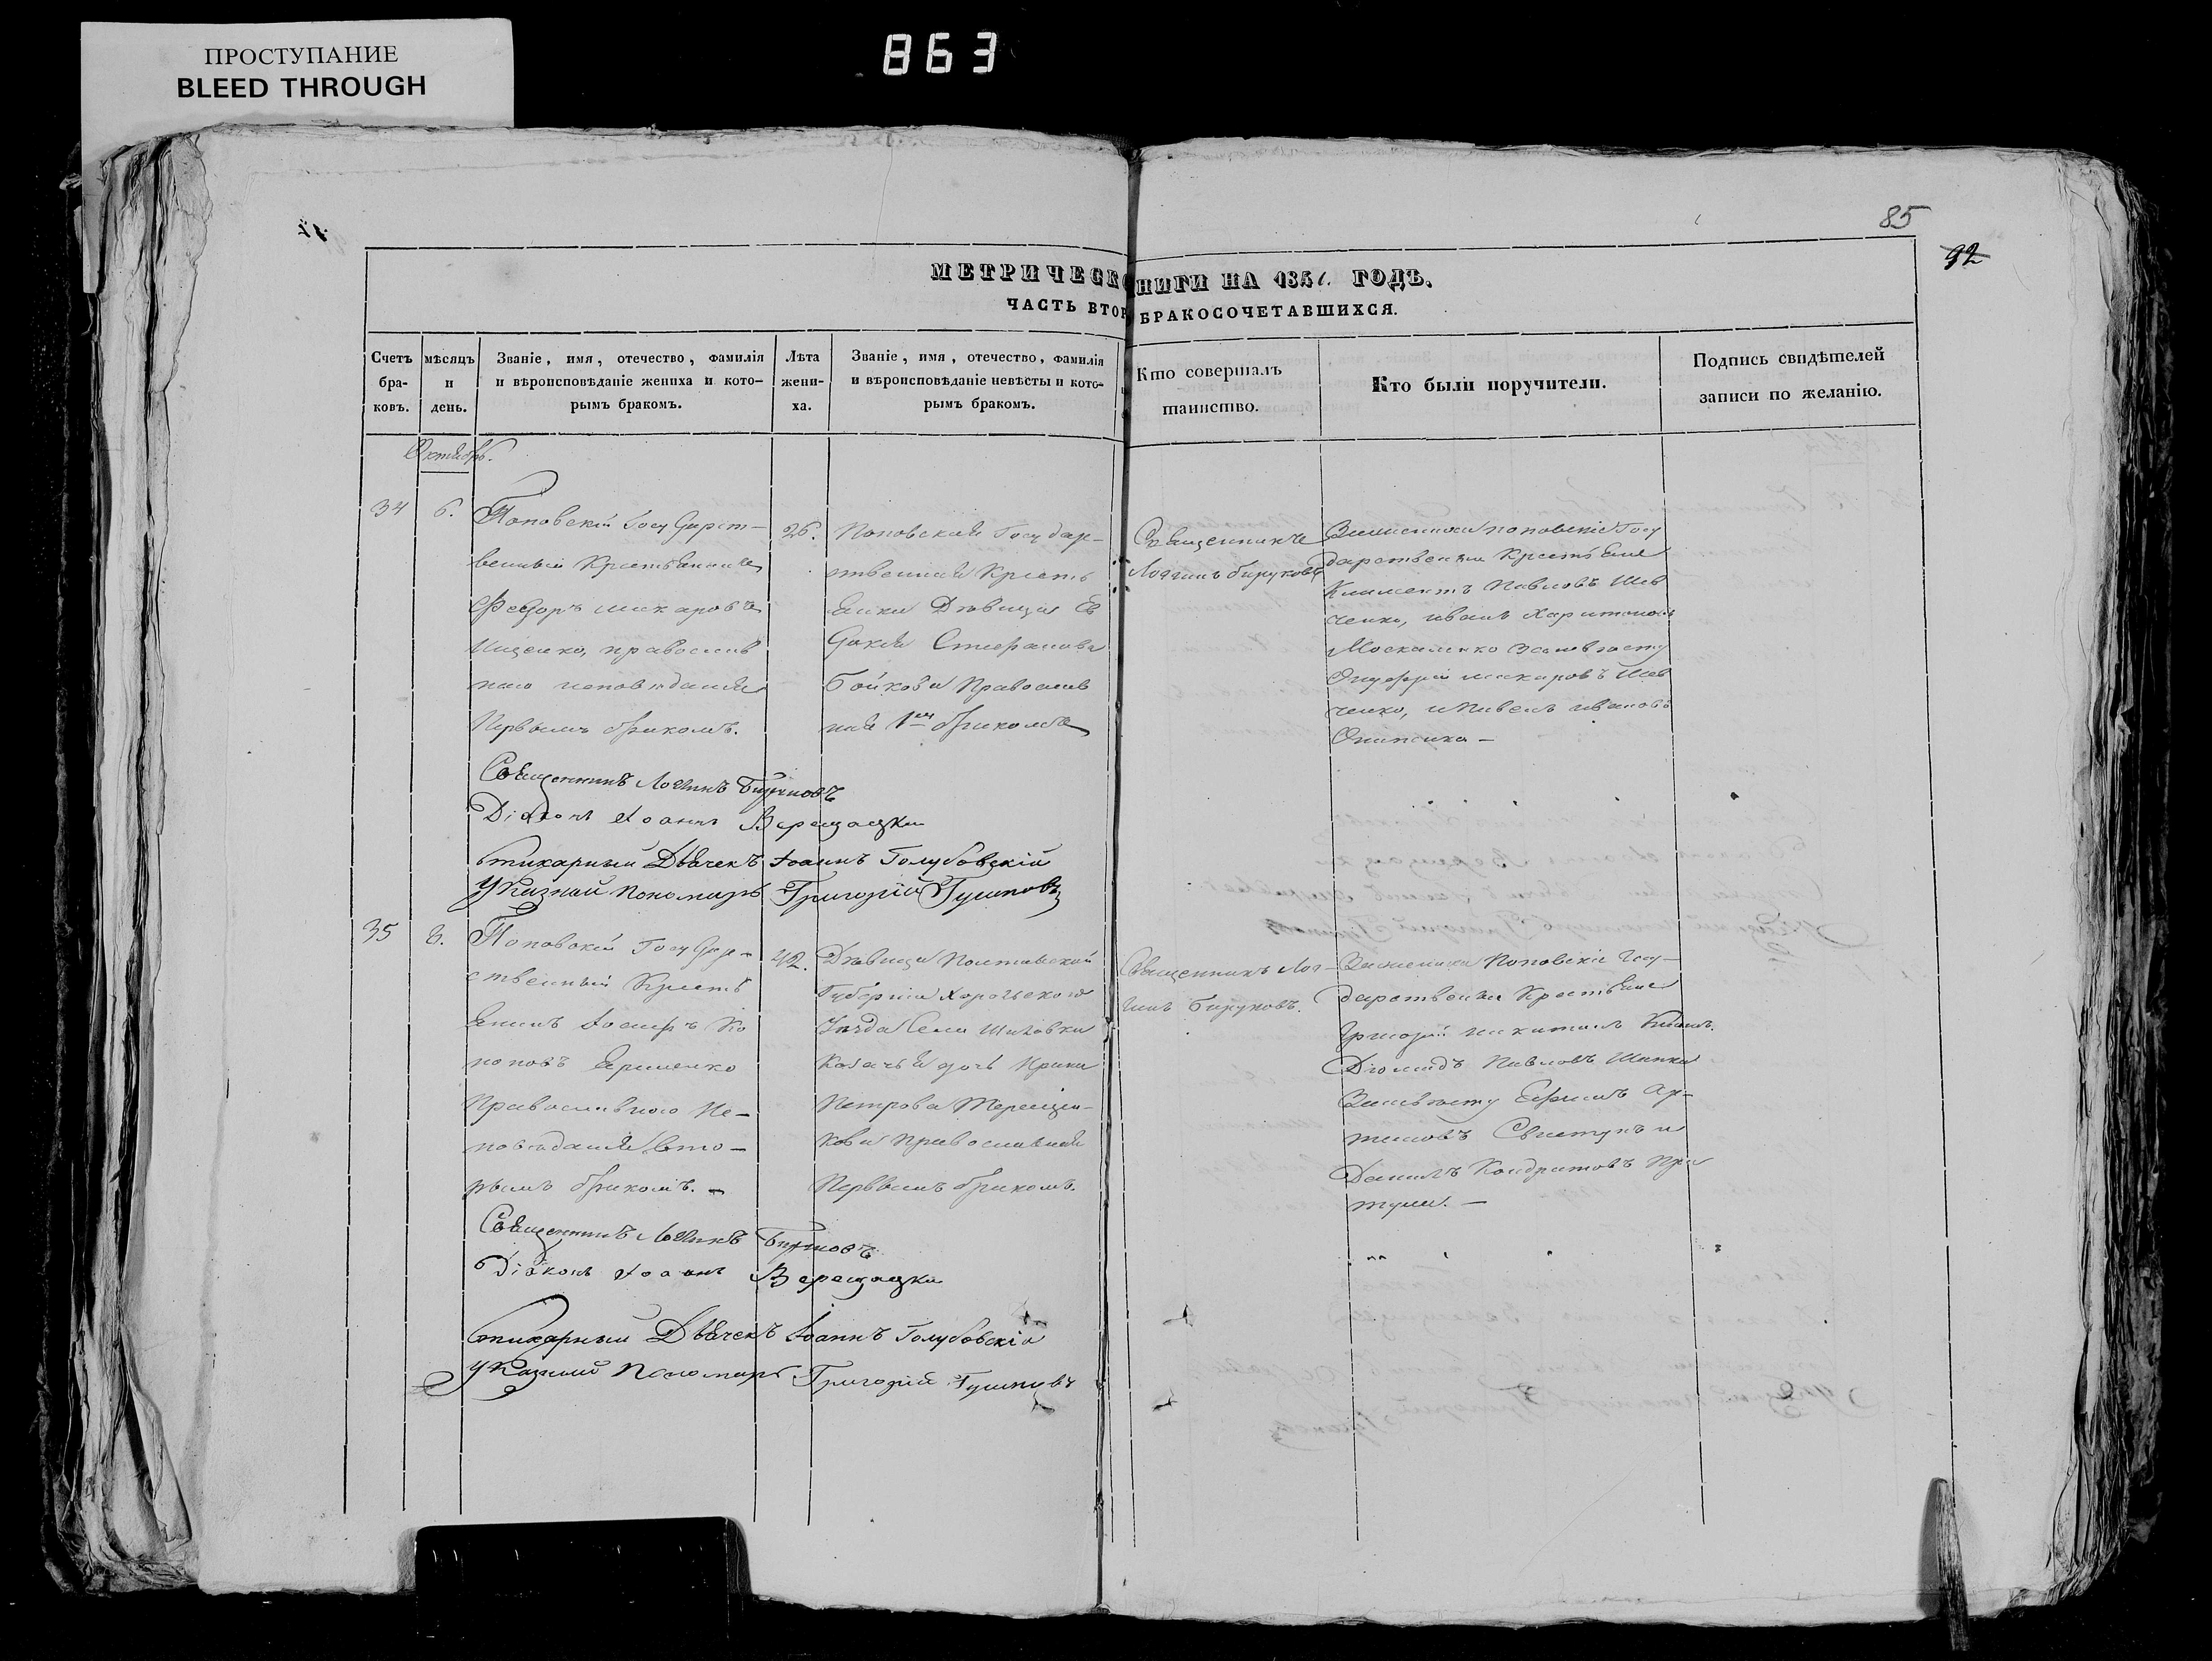 ПРОСТУПАНИЕ
BLEED THROUGH
863
85
92
МЕТРИЧЕСК
НИГИ НА 1851. ГОДЪ.
ЧАСТЬ ВТОР
БРАКОСОЧЕТАВШИХСЯ.
Счетъ бра-ковъ.
мѣсяцъ и день.
Званіе, имя, отечество, фамилія
и вѣроисповѣданіе жениха и кото-
рымъ бракомъ.
Лѣта жени-ха.
Званіе, имя, отечество, фамилія
и вѣроисповѣданіе невѣсты и кото-
рымъ бракомъ.
Кто совершалъ
таинство.
Кто были поручители.
Подпись свидѣтелей
записи по желанію.
Октябрь.
34
6.
Поповскій Государст-
венный Крестьянинъ
Феодоръ Макаровъ
Ищенко, православ
наго исповѣданія
Первымъ бракомъ.
26.
Поповская Государ-
ственная Кресть
янка Дѣвица Ев
докия Стефанова
Бойкова Православ
ная 1ым бракомъ
Священникъ
Логгинъ Бируковъ
поповскіе Госу
дарственныи Крестьяне
Климентъ Павловъ Шев
ченко, Иванъ Харитоновъ
Москаленко
Онуфрій Макаровъ Шев
ченко, и Павелъ Ивановъ
Священникъ Логинъ Бируковъ
Діаконъ Іоаннъ Верещацки
Стихарный Дьячекъ Іоаннъ Голубовскій
Указный Пономарь Григорій Гушповъ
35
8.
Поповскій Государ-
ственный Кресть
янинъ Іосифъ Ко
ноновъ Яременко
Православнаго Ис-
повѣданія вто-
рымъ бракомъ.
42.
Дѣвица Полтавской
Губерніи Хорольскаго
Уѣзда Села Шиловки
Козачья дочь Ирина
Петрова Терещен-
кова Православная
Первымъ бракомъ.
Священникъ Лог-
инъ Бируковъ.
Поповскіе Госу-
дарственные Крестьяне
Григорій Никитинъ
Діомидъ Павловъ Шапка
Ефимъ Ар-
темовъ Свистунъ и
Даниилъ Кондратовъ При
тула. —
Священникъ Логинъ Бируковъ
Діаконъ Іоаннъ Верещацки
Стихарный Дьячекъ Іоаннъ Голубовскій
Указный Пономарь Григорій Гушповъ